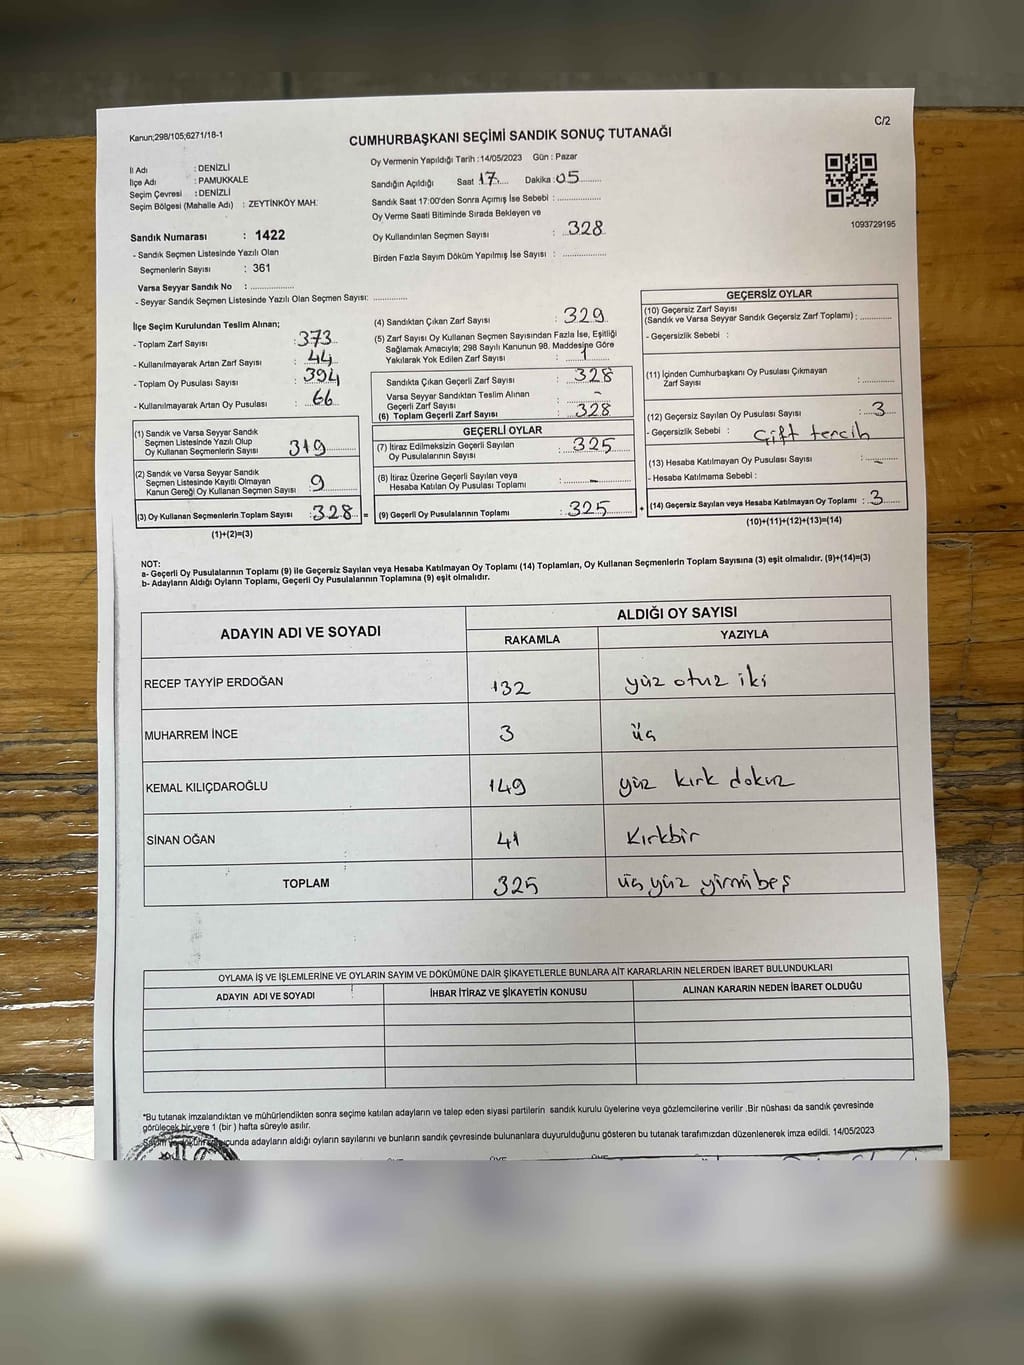 Kanun;298/105;6271/18-1
C/2
CUMHURBAŞKANI SEÇİMİ SANDIK SONUÇ TUTANAĞI
İl Adı : DENİZLİ
İlçe Adı : PAMUKKALE
Seçim Çevresi : DENİZLİ
Seçim Bölgesi (Mahalle Adı) : ZEYTİNKÖY MAH.
Sandık Numarası : 1422
- Sandık Seçmen Listesinde Yazılı Olan
Seçmenlerin Sayısı : 361
Varsa Seyyar Sandık No : ..............
- Seyyar Sandık Seçmen Listesinde Yazılı Olan Seçmen Sayısı: ............
Oy Vermenin Yapıldığı Tarih :14/05/2023 Gün : Pazar
Sandığın Açıldığı Saat 17.... Dakika :05........
Sandık Saat 17:00'den Sonra Açımış İse Sebebi : ..............
Oy Verme Saati Bitiminde Sırada Bekleyen ve
Oy Kullandırılan Seçmen Sayısı : 328
Birden Fazla Sayım Döküm Yapılmış İse Sayısı : ..............
1093729195
İlçe Seçim Kurulundan Teslim Alınan;
- Toplam Zarf Sayısı : 373
- Kullanılmayarak Artan Zarf Sayısı : 44
- Toplam Oy Pusulası Sayısı : 394
- Kullanılmayarak Artan Oy Pusulası : 66
(1) Sandık ve Varsa Seyyar Sandık
Seçmen Listesinde Yazılı Olup
Oy Kullanan Seçmenlerin Sayısı 319
(2) Sandık ve Varsa Seyyar Sandık
Seçmen Listesinde Kayıtlı Olmayan
Kanun Gereği Oy Kullanan Seçmen Sayısı : 9
(3) Oy Kullanan Seçmenlerin Toplam Sayısı : 328 =
(1)+(2)=(3)
(4) Sandıktan Çıkan Zarf Sayısı : 329
(5) Zarf Sayısı Oy Kullanan Seçmen Sayısından Fazla İse, Eşitliği
Sağlamak Amacıyla; 298 Sayılı Kanunun 98. Maddesine Göre
Yakılarak Yok Edilen Zarf Sayısı : 1
Sandıkta Çıkan Geçerli Zarf Sayısı : 328
Varsa Seyyar Sandıktan Teslim Alınan
Geçerli Zarf Sayısı : -
(6) Toplam Geçerli Zarf Sayısı : 328
GEÇERLİ OYLAR
(7) İtiraz Edilmeksizin Geçerli Sayılan
Oy Pusulalarının Sayısı : 325
(8) İtiraz Üzerine Geçerli Sayılan veya
Hesaba Katılan Oy Pusulası Toplamı : -
(9) Geçerli Oy Pusulalarının Toplamı : 325 +
GEÇERSİZ OYLAR
(10) Geçersiz Zarf Sayısı
(Sandık ve Varsa Seyyar Sandık Geçersiz Zarf Toplamı) : ..........
- Geçersizlik Sebebi :
(11) İçinden Cumhurbaşkanı Oy Pusulası Çıkmayan
Zarf Sayısı : ..........
(12) Geçersiz Sayılan Oy Pusulası Sayısı : 3
- Geçersizlik Sebebi : Çift tercih
(13) Hesaba Katılmayan Oy Pusulası Sayısı : -
- Hesaba Katılmama Sebebi :
(14) Geçersiz Sayılan veya Hesaba Katılmayan Oy Toplamı : 3
(10)+(11)+(12)+(13)=(14)
NOT:
a- Geçerli Oy Pusulalarının Toplamı (9) ile Geçersiz Sayılan veya Hesaba Katılmayan Oy Toplamı (14) Toplamları, Oy Kullanan Seçmenlerin Toplam Sayısına (3) eşit olmalıdır. (9)+(14)=(3)
b- Adayların Aldığı Oyların Toplamı, Geçerli Oy Pusulalarının Toplamına (9) eşit olmalıdır.
ADAYIN ADI VE SOYADI ALDIĞI OY SAYISI
RAKAMLA YAZIYLA
RECEP TAYYİP ERDOĞAN 132 yüz otuz iki
MUHARREM İNCE 3 üç
KEMAL KILIÇDAROĞLU 149 yüz kırk dokuz
SİNAN OĞAN 41 Kırkbir
TOPLAM 325 üç yüz yirmi beş
OYLAMA İŞ VE İŞLEMLERİNE VE OYLARIN SAYIM VE DÖKÜMÜNE DAİR ŞİKAYETLERLE BUNLARA AİT KARARLARIN NELERDEN İBARET BULUNDUKLARI
ADAYIN ADI VE SOYADI İHBAR İTİRAZ VE ŞİKAYETİN KONUSU ALINAN KARARIN NEDEN İBARET OLDUĞU
*Bu tutanak imzalandıktan ve mühürlendikten sonra seçime katılan adayların ve talep eden siyasi partilerin sandık kurulu üyelerine veya gözlemcilerine verilir .Bir nüshası da sandık çevresinde
görülecek bir yere 1 (bir ) hafta süreyle asılır.
adayların aldığı oyların sayılarını ve bunların sandık çevresinde bulunanlara duyurulduğunu gösteren bu tutanak tarafımızdan düzenlenerek imza edildi. 14/05/2023